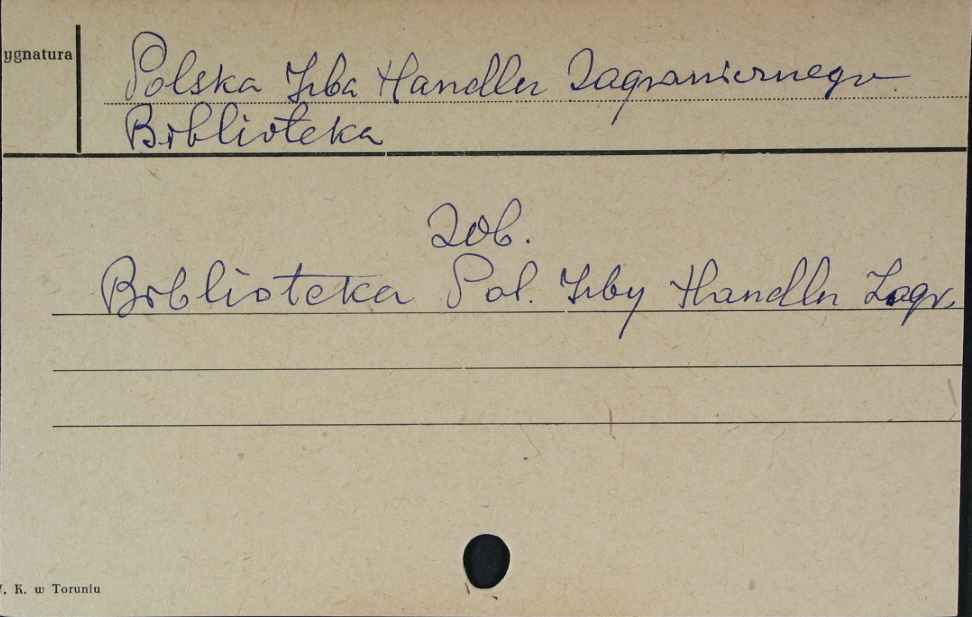 ygnatura
Polska Izba Handlu Zagranicznego
Biblioteka
Zob.
Biblioteka Pol. Izby Handlu Zagr.
K. w Toruniu